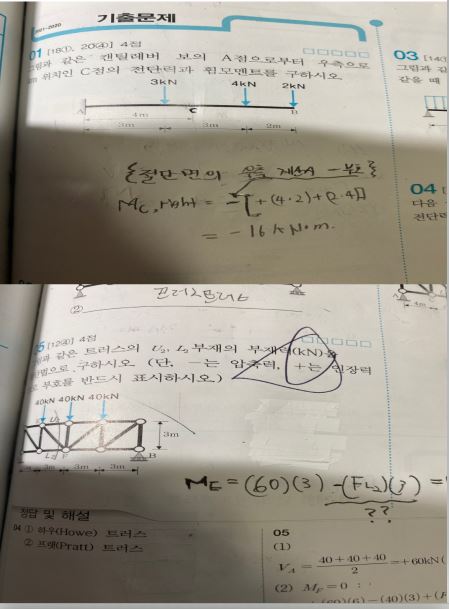 2001-2020
기출문제
01 [18①, 20④] 4점
그림과 같은 캔틸레버 보의 A점으로부터 우측으로
4m 위치인 C점의 전단력과 휨모멘트를 구하시오.
3kN 4kN 2kN
A C B
4m
3m 3m 2m
{절단면의 우측 계산 -부호}
Mc, right = -[+(4·2)+(2·4)]
= -16kN·m.
03 [14①
그림과 같
같을 때
04 [
다음
전단력
4m
②
05 [12④] 4점
그림과 같은 트러스의 U₂, L₂ 부재의 부재력(kN)을
구하시오 (단, -는 압축력, +는 인장력
부호를 반드시 표시하시오.)
40kN 40kN 40kN
U₂
3m
L₂ F B
3m 3m 3m
ME = (60)(3) -(FL₂)(3) =
??
정답 및 해설
04 ① 하우(Howe) 트러스
② 프랫(Pratt) 트러스
05
(1)
V_A = (40+40+40)/2 = +60kN(
(2) M_F = 0 :
+(60)(6) - (40)(3) + (F